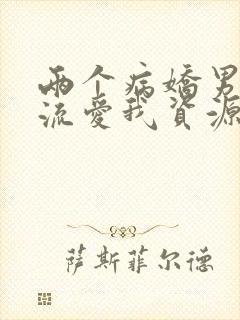 两个病嬌男
流愛我資源
萨斯菲尔德